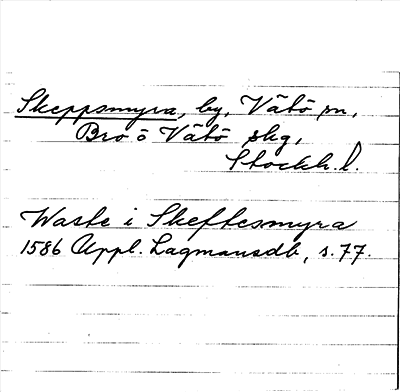 Skeppsmyra, by, Vätö sn,
Bro o Vätö skg,
Stockh. l.
Waste i Skeftesmyra
1586 Uppl. Lagmansdb, s. 77.